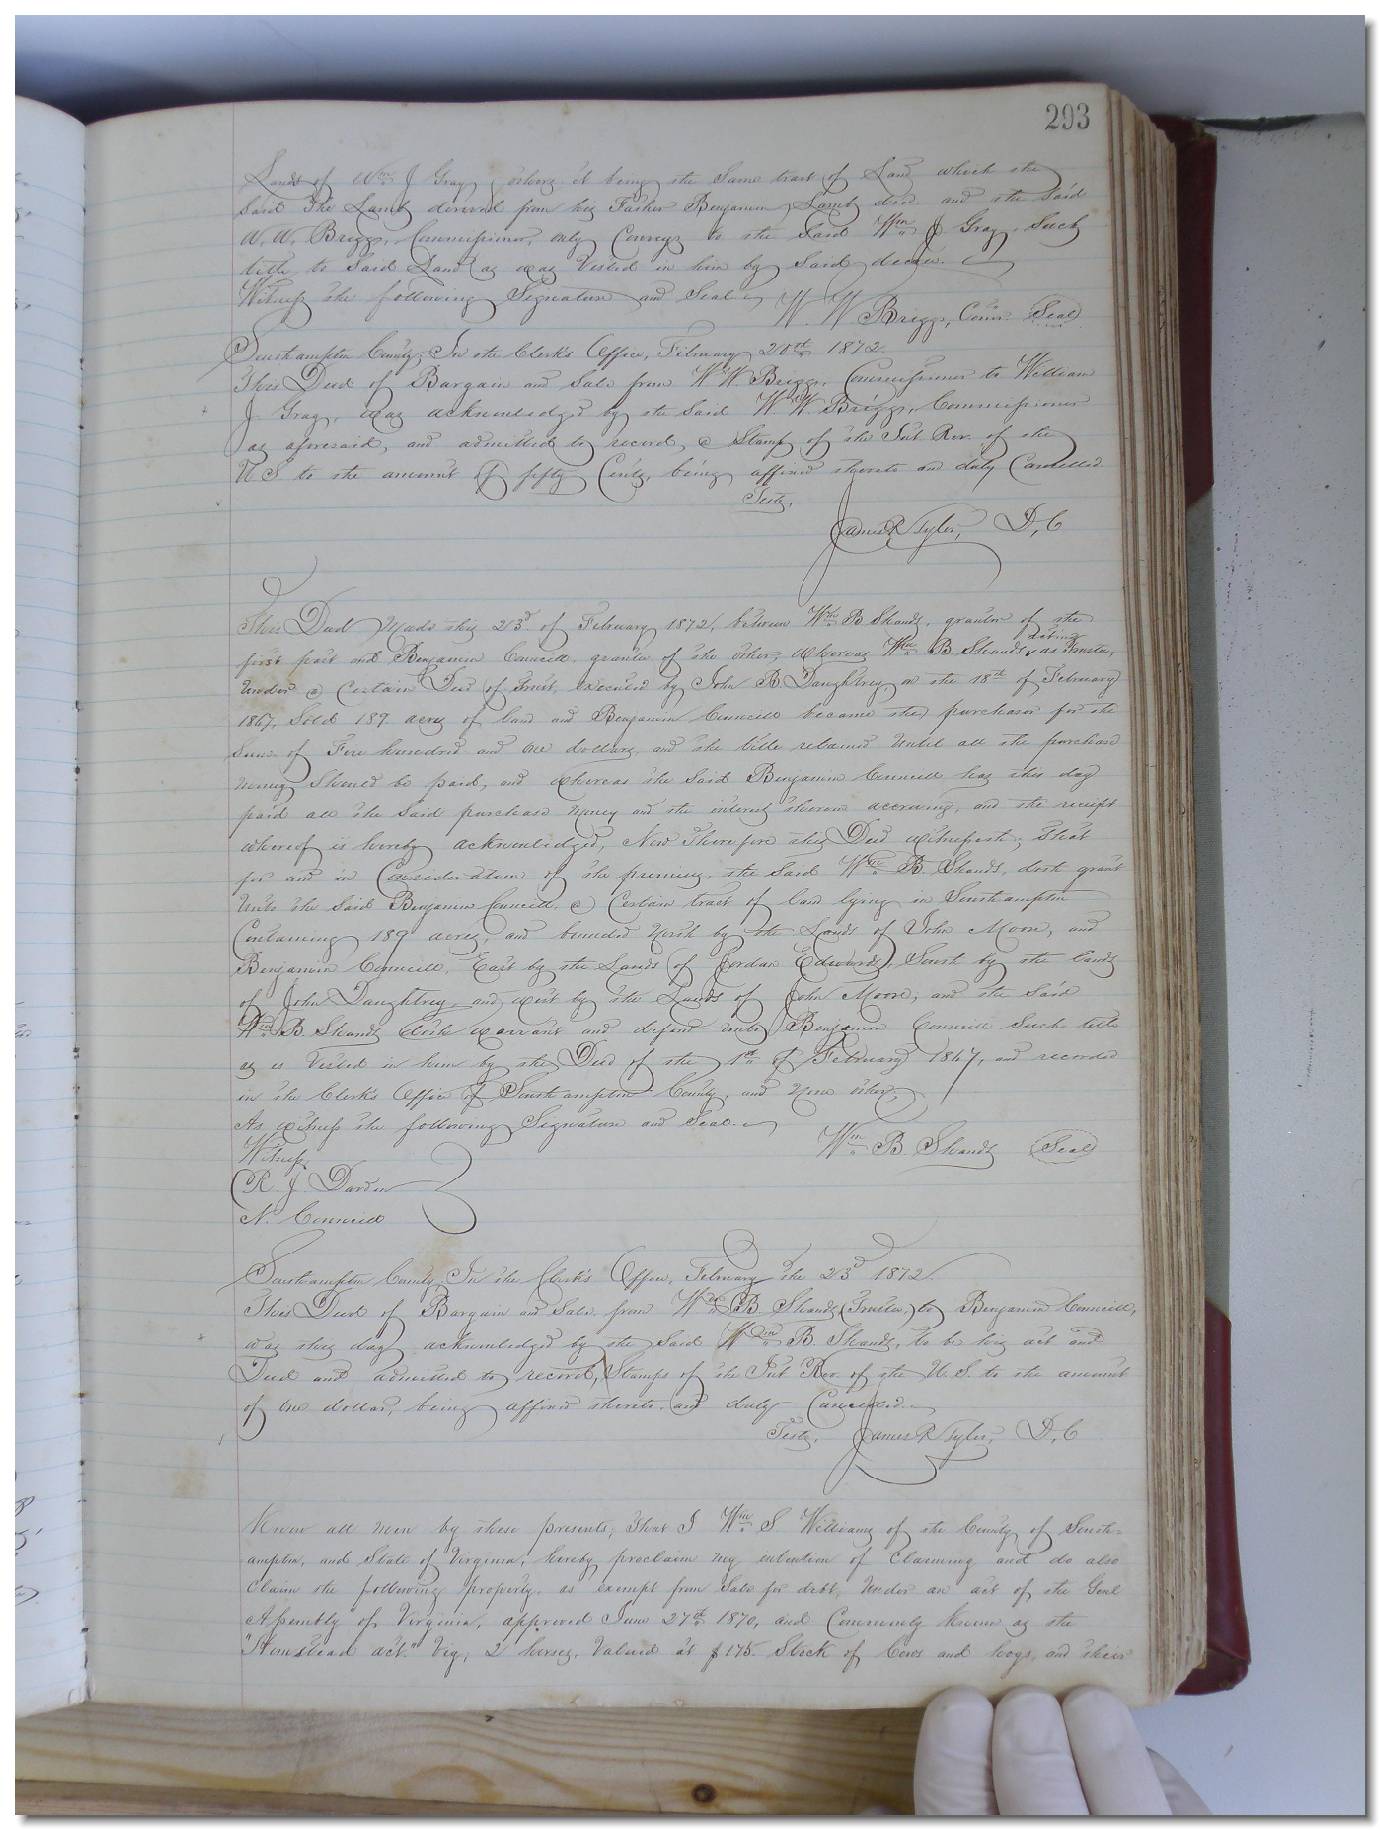 293
Lands of Wm J Gray, others it being the Same tract of Land which the
Said The Lamb derived from his Father Benjamin Lamb decd. and the Said
W. W. Briggs, Commissioner, only Conveys to the Said Wm J Gray, Such
title to Said Land as was Vested in him by Said decree.
Witness the following Signature and Seal
W. W Briggs, Comr. Seal
Southampton County, In the Clerk's Office, February 20th 1872
This Deed of Bargain and Sale from W W Briggs, Commissioner to William
J. Gray, was acknowledged by the Said W. W Briggs, Commissioner
as aforesaid, and admitted to record, a Stamp of the Int. Rev. of the
U S to the amount of fifty Cents, being affixed thereto and duly Cancelled
Teste,
James R Tyler, D, C
This Deed Made this 23d. of February 1872, between Wm B Shands, grantor of the
first part and Benjamin Councill, grantee of the other, Whereas Wm B. Shands acting as Trustee,
Under a Certain Deed of Trust, executed by John R. Daughtrey, on the 18th of February
1867, Sold 189 acres of land and Benjamin Councill became the purchaser for the
Sum of Five hundred and one dollars, and the title retained Until all the purchase
money Should be paid, and Whereas the Said Benjamin Councill has this day
paid all the Said purchase money and the interest thereon accruing, and the receipt
whereof is hereby acknowledged, Now Therefore this Deed witnesseth, That
for and in Consideration of the premises, the Said Wm B. Shands, doth grant
Unto the Said Benjamin Councill, a Certain tract of land lying in Southampton
Containing 189 acres, and bounded North by the Lands of John Moore, and
Benjamin Councill, East by the Lands of Jordan Edwards, South by the lands
of John Daughtrey, and West by the Lands of John Moore, and the Said
Wm B. Shands doth warrant and defend unto Benjamin Councill Such title
as is Vested in him by the Deed of the 1st of February 1867, and recorded
in the Clerk's Office of Southampton County, and None other,
As Witness the following Signature and Seal.
Wm B. Shands Seal
Witness,
R. J. Darden
N. Councill
Southampton County, In the Clerk's Office, February the 23d 1872.
This Deed of Bargain and Sale from Wm B. Shands (Trustee,) to Benjamin Councill,
was this day acknowledged by the Said Wm B. Shands, to be his act and
Deed and admitted to record, Stamps of the Int Rev. of the U. S. to the amount
of one dollar, being affixed thereto, and duly Cancelled.
Teste, James R Tyler, D, C
Know all Men by these presents, That I Wm S Williams of the County of South-
ampton, and State of Virginia, hereby proclaim my intention of Claiming and do also
Claim the following property, as exempt from Sale for debt, Under an act of the Genl
Assembly of Virginia, approved June 27th 1870, and Commonly known as the
"Homstead act." Viz, 2 horses, Valued at $175. Stock of Cows and hogs, and their